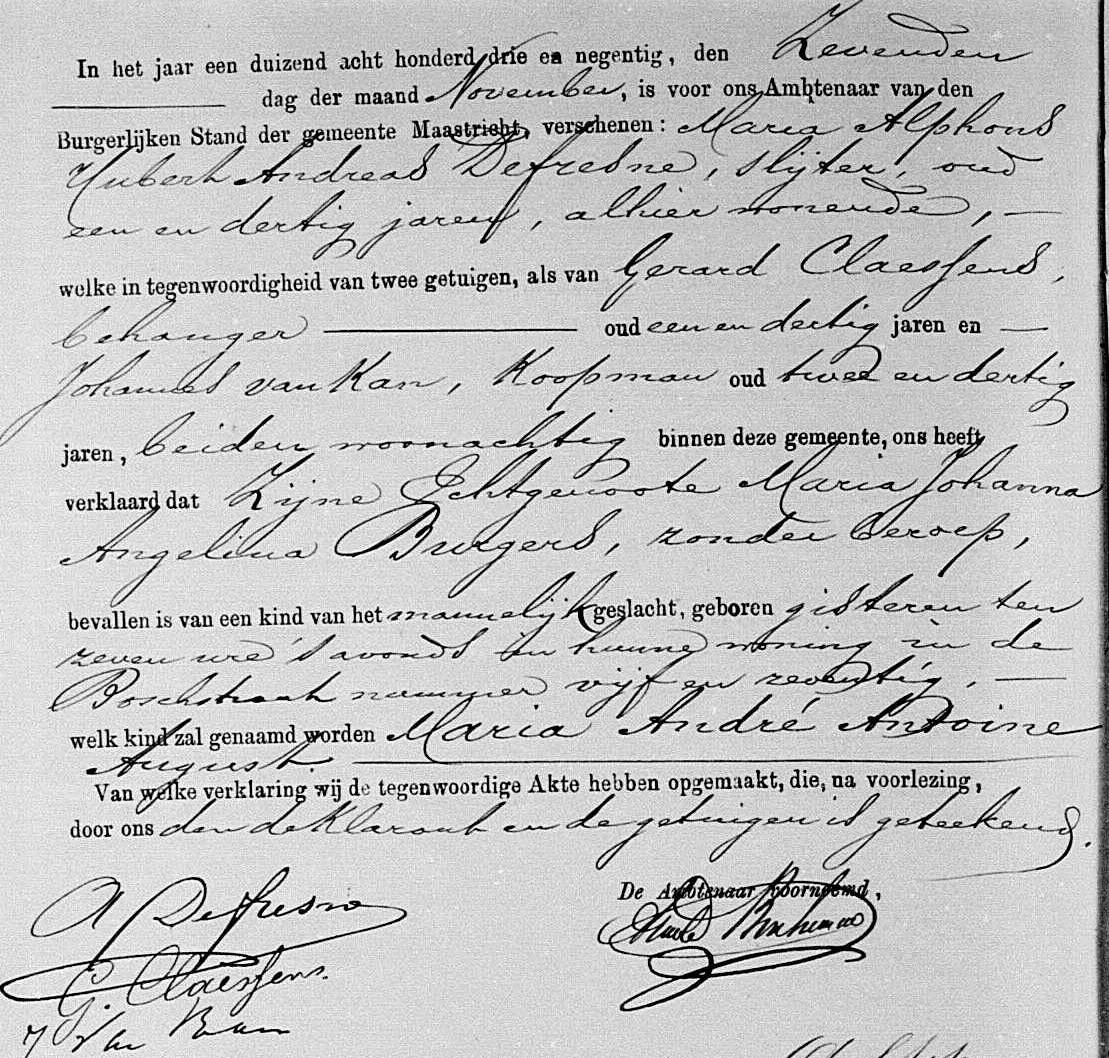 In het jaar een duizend acht honderd drie en negentig, den Zevenden
dag der maand November, is voor ons Ambtenaar van den
Burgerlijken Stand der gemeente Maastricht, verschenen: Maria Alphons
Hubert Andreas Defresne, slijter, oud
een en dertig jaren, alhier wonende,
welke in tegenwoordigheid van twee getuigen, als van Gerard Claessens,
behanger oud een en dertig jaren en
Johannes van Kan, Koopman oud twee en dertig
jaren, beiden woonachtig binnen deze gemeente, ons heeft
verklaard dat Zijne Echtgenoote Maria Johanna
Angelina Burgers, zonder beroep,
bevallen is van een kind van het mannelijk geslacht, geboren gisteren ten
zeven ure 's avonds in hunne woning in de
Boschstraat nummer vijf en zeventig,
welk kind zal genaamd worden Maria André Antoine
August.
Van welke verklaring wij de tegenwoordige Akte hebben opgemaakt, die, na voorlezing,
door ons den deklarant en de getuigen is geteekend.
De Ambtenaar voornoemd,
A Defresne
G. Claessens.
J Van Kan